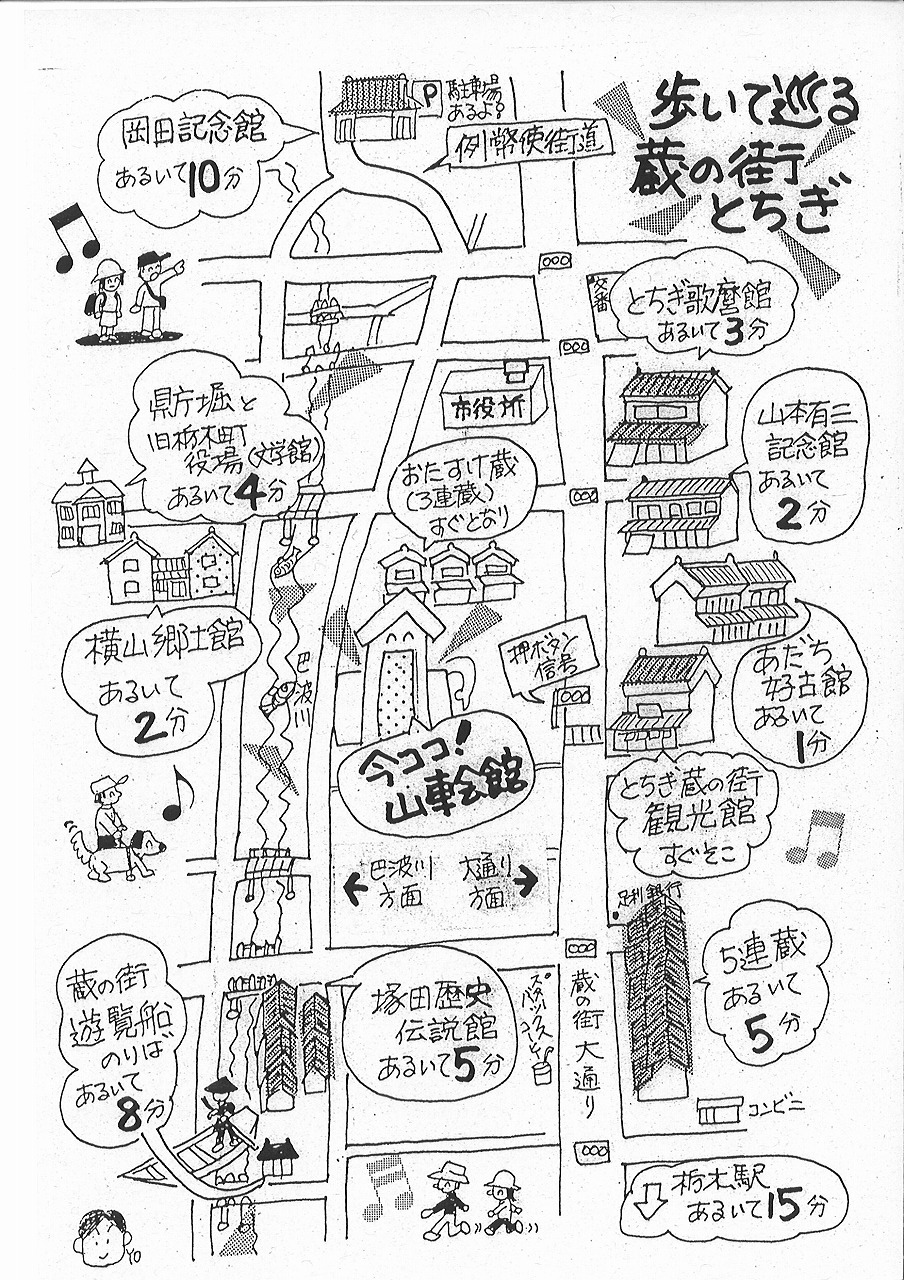 歩いて巡る
蔵の街
とちぎ
P 駐車場
あるよ!
例幣使街道
岡田記念館
あるいて10分
交番
とちぎ歌麿館
あるいて3分
市役所
県庁堀と
旧栃木町
役場(文学館)
あるいて4分
おたすけ蔵
(3連蔵)
すぐとなり
山本有三
記念館
あるいて
2分
横山郷土館
あるいて
2分
巴波川
押ボタン
信号
あだち
好古館
あるいて
1分
今ココ!
山車会館
とちぎ蔵の街
観光館
すぐそこ
←巴波川
方面
大通り→
方面
足利銀行
5連蔵
あるいて
5分
蔵の街
遊覧船
のりば
あるいて
8分
塚田歴史
伝説館
あるいて5分
蔵の街大通り
コンビニ
栃木駅
あるいて15分
YO